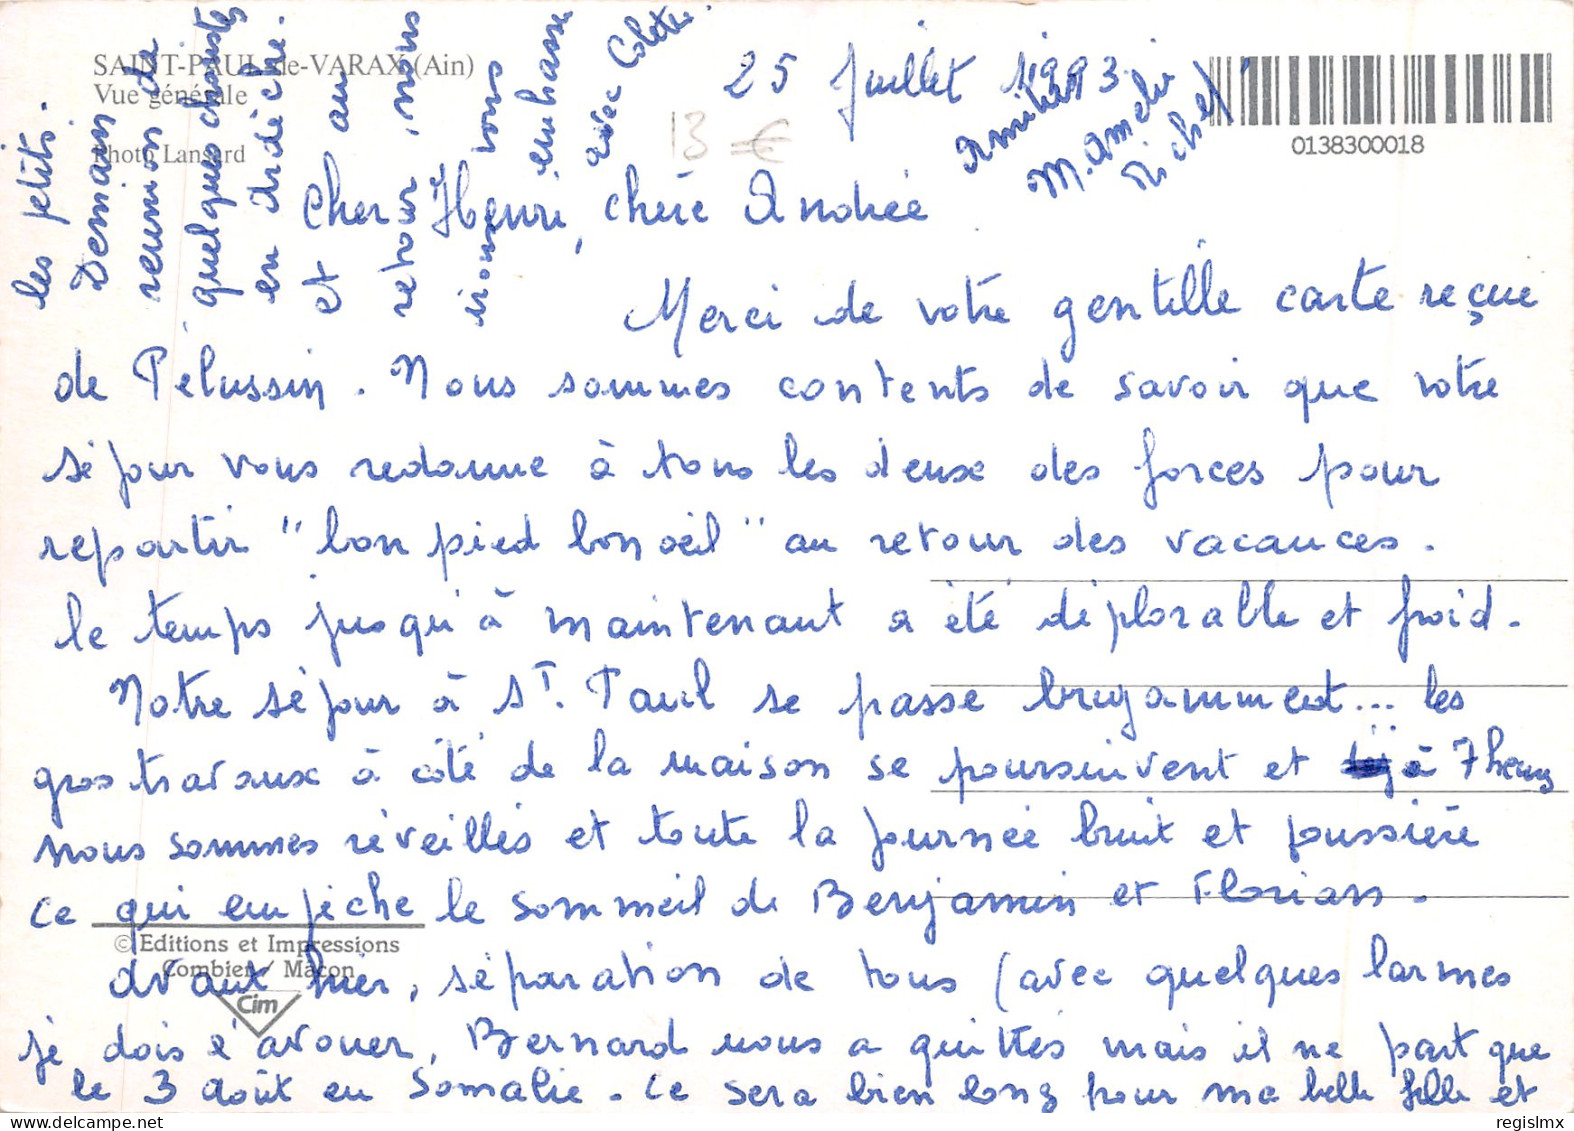 SAINT-PAUL-de-VARAX (Ain)
Vue générale
Photo Lansard
0138300018
13 €
25 Juillet 1993
Cher Henri, chère Andrée
Merci de votre gentille carte reçue
de Pélussin. Nous sommes contents de savoir que votre
séjour vous redonne à tous les deux des forces pour
repartir "bon pied bon œil" au retour des vacances.
le temps jusqu'à maintenant a été déplorable et froid.
Notre séjour à St. Paul se passe bruyamment... les
gros travaux à côté de la maison se poursuivent et à 7 heures
nous sommes réveillés et toute la journée bruit et poussière
ce qui empêche le sommeil de Benjamin et Florian.
avant hier, séparation de tous (avec quelques larmes
je dois l'avouer, Bernard nous a quittés mais il ne part que
le 3 août en Somalie. Ce sera bien long pour ma belle fille et
les petits.
Demain de
reunion de
quelques chouste
en Ardèche.
et au
retour, nous
irons vous
embrasser
avec Colette.
Amitiés
M. Amélie
Michel
© Editions et Impressions
Combier / Mâcon
Cim
delcampe.net
regislmx